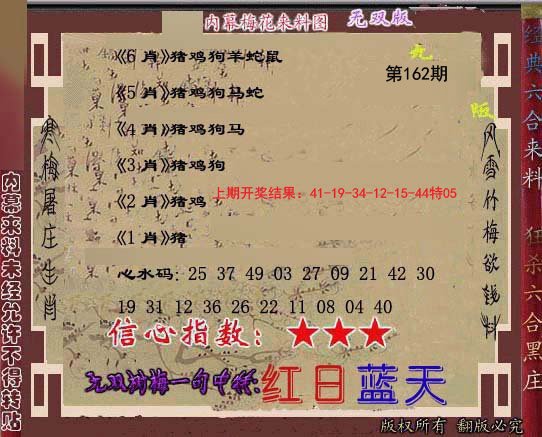 内幕梅花来料图 无双版
《6 肖》猪鸡狗羊蛇鼠
第162期
《5 肖》猪鸡狗马蛇
《4 肖》猪鸡狗马
《3 肖》猪鸡狗
上期开奖结果：41-19-34-12-15-44特05
《2 肖》猪鸡
《1 肖》猪
心水码：25 37 49 03 27 09 21 42 30
19 31 12 36 26 22 11 08 04 40
信心指数：★★★
一句中特:红日蓝天
版权所有 翻版必究
寒梅屠庄生肖
风雪竹梅欲钱料
内幕来料未经允许不得转贴
经典六合来料 狂杀六合黑庄